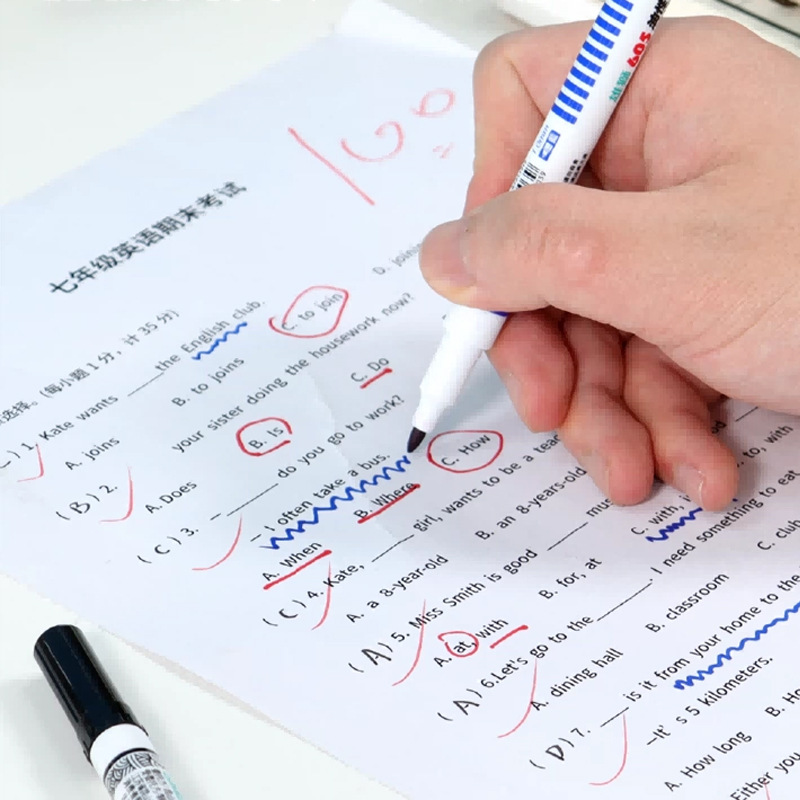 100
七年级英语期末考试
选择。(每小题 1 分，计 35 分)
(C) 1. Kate wants ____the English club.
A. joins B. to joins C. to join D.
(B) 2. your sister doing the housework now?
A.Does B. Is C. Do
(C) 3. - ______ do you go to work?
- I often take a bus.
A. When B. Where C. How
(C) 4. Kate, ____ girl, wants to be a
A. a 8-year-old B. an 8-years-old
(A) 5. Miss Smith is good ____
A. at, with B. for, at C. with, to, with
(A) 6.Let's go to the ______. I need something to eat
A. dining hall B. classroom C. club
(D) 7. ___ is it from your home to the
-It's 5 kilometers.
A. How long B.
Either you
609